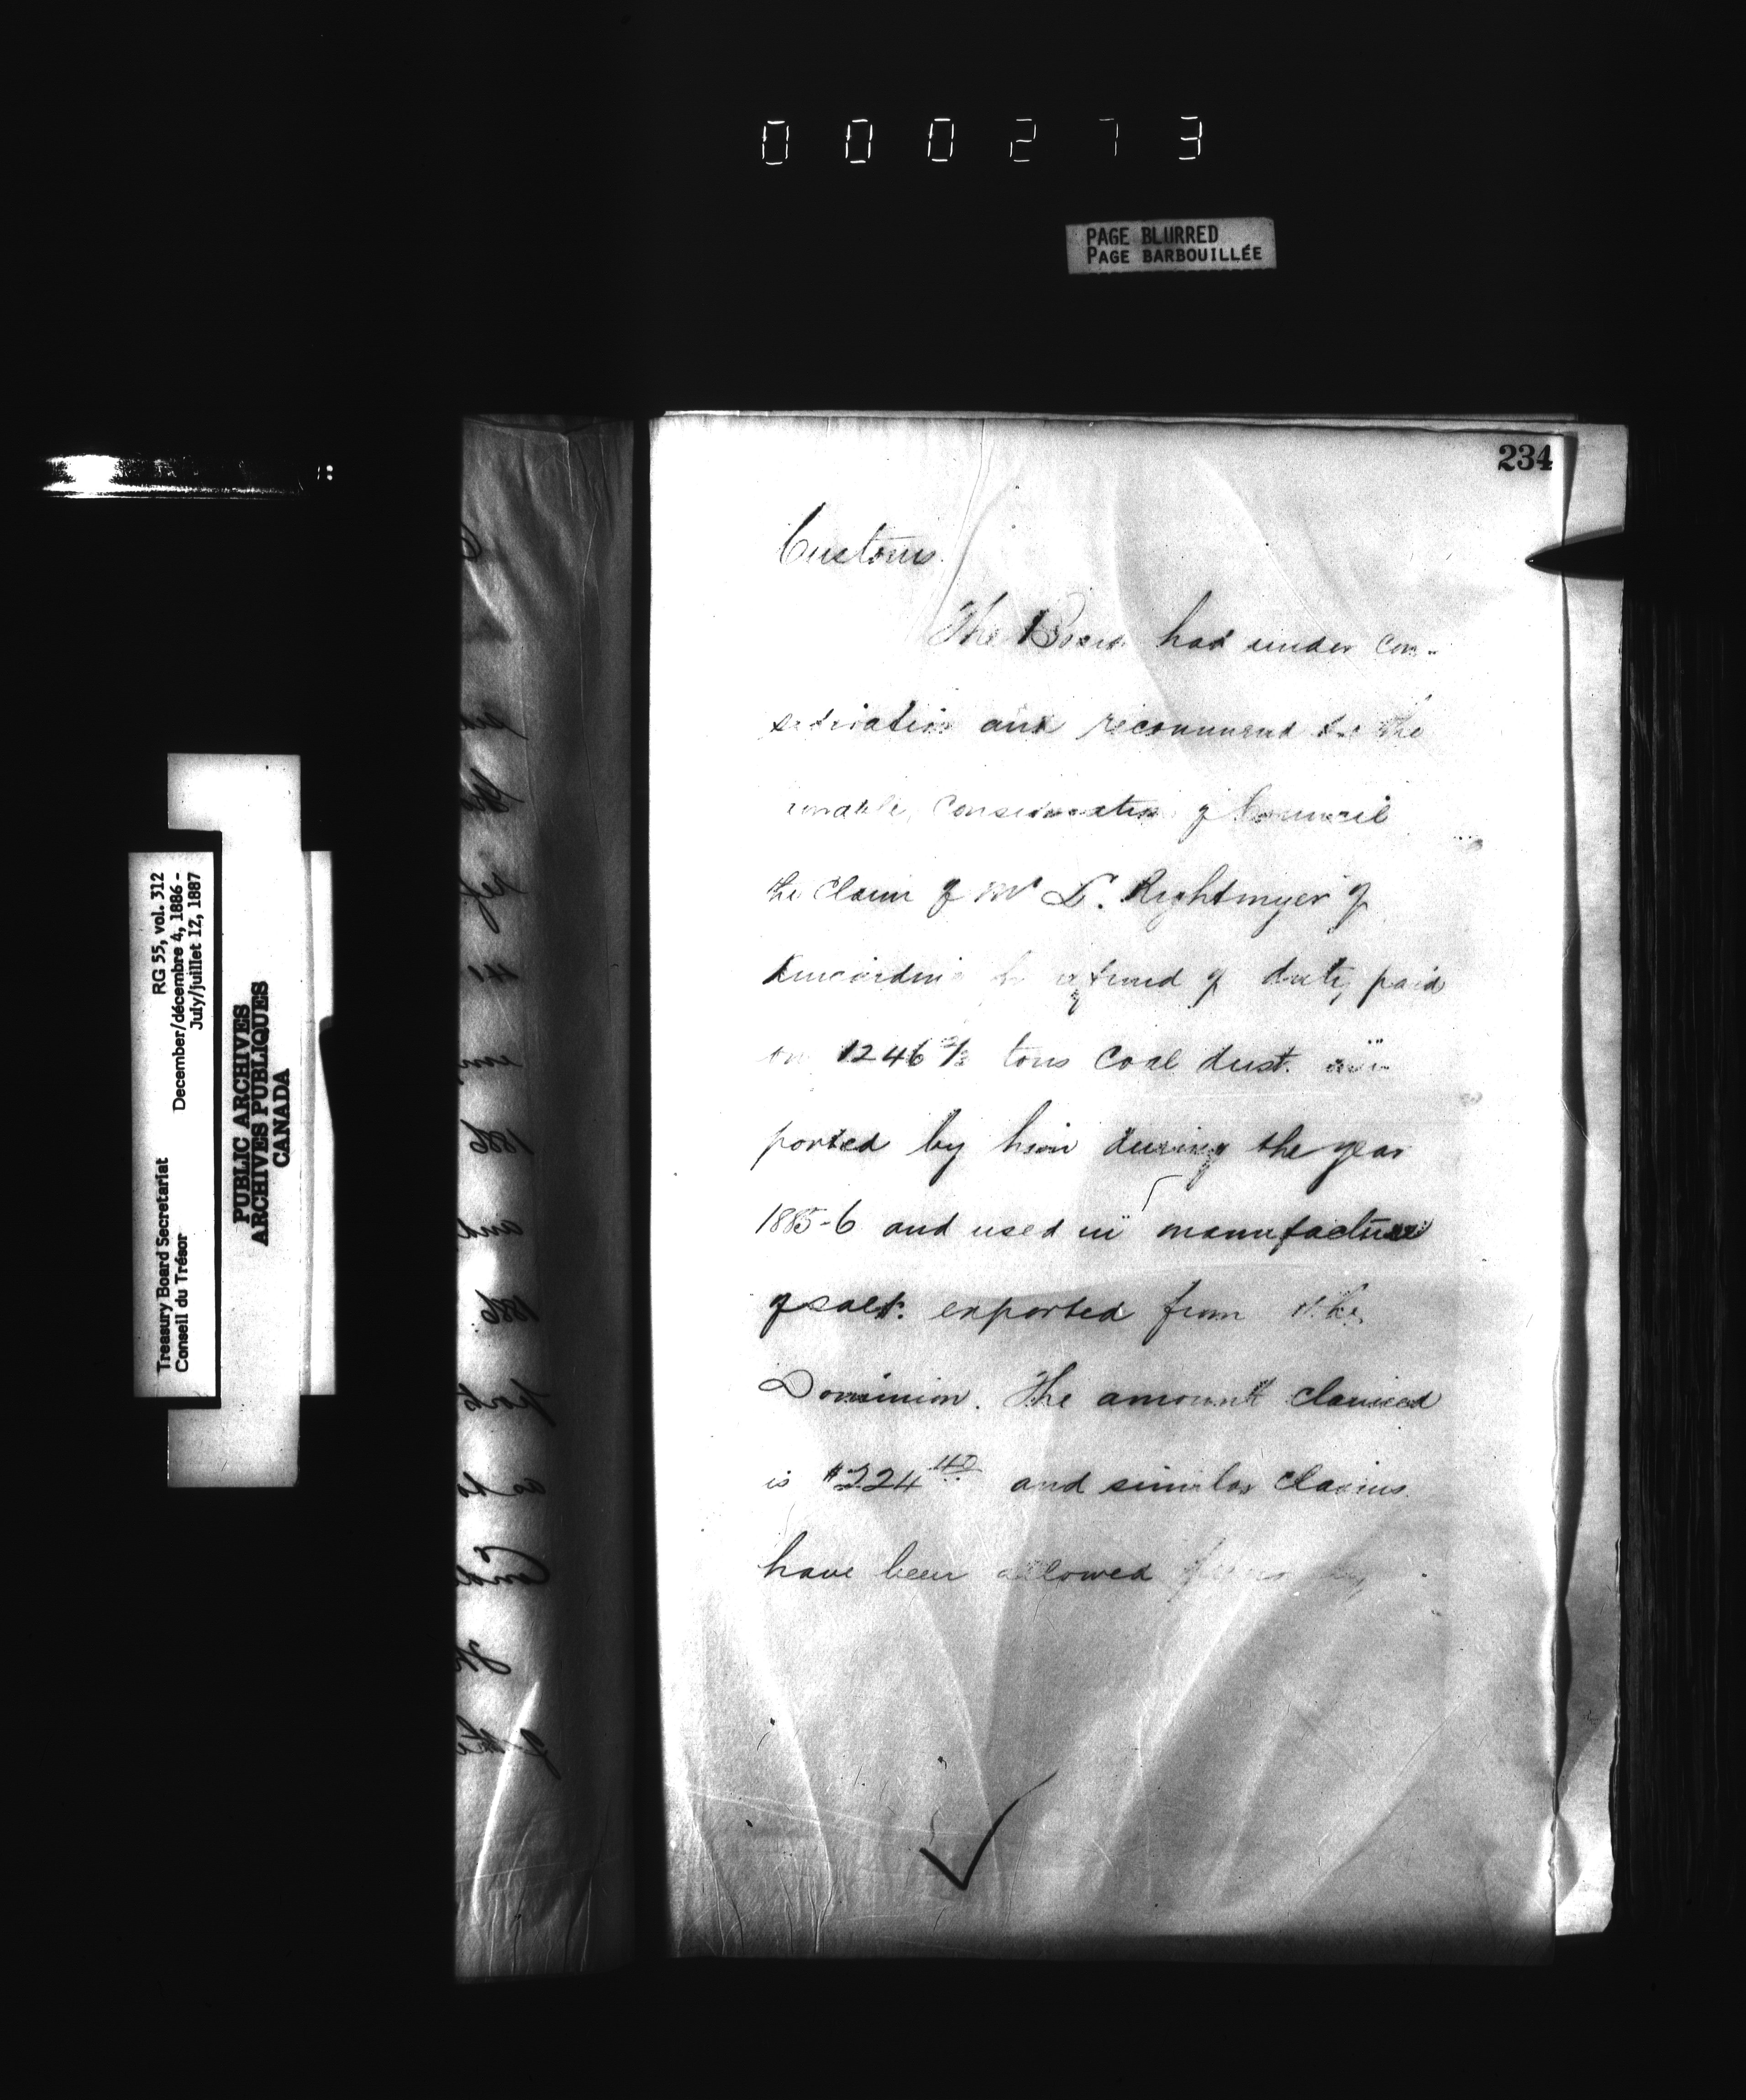 000273
PAGE BLURRED
PAGE BARBOUILLÉE
RG 55, vol. 312
December/décembre 4, 1886 -
July/juillet 12, 1887
Treasury Board Secretariat
Conseil du Trésor
PUBLIC ARCHIVES
ARCHIVES PUBLIQUES
CANADA
234
Customs.
The Board had under con-
sideration and recommend to the
consideration of Council
the claim of Mr Rightmyer of
Kincardine refund of duty paid
on 1246 2/3 tons coal dust im
ported by him during the year
1885-6 and used in manufacture
of salt exported from the
Dominion. The amount claimed
is $224 40 and similar claims
have been allowed
1886
and
1886